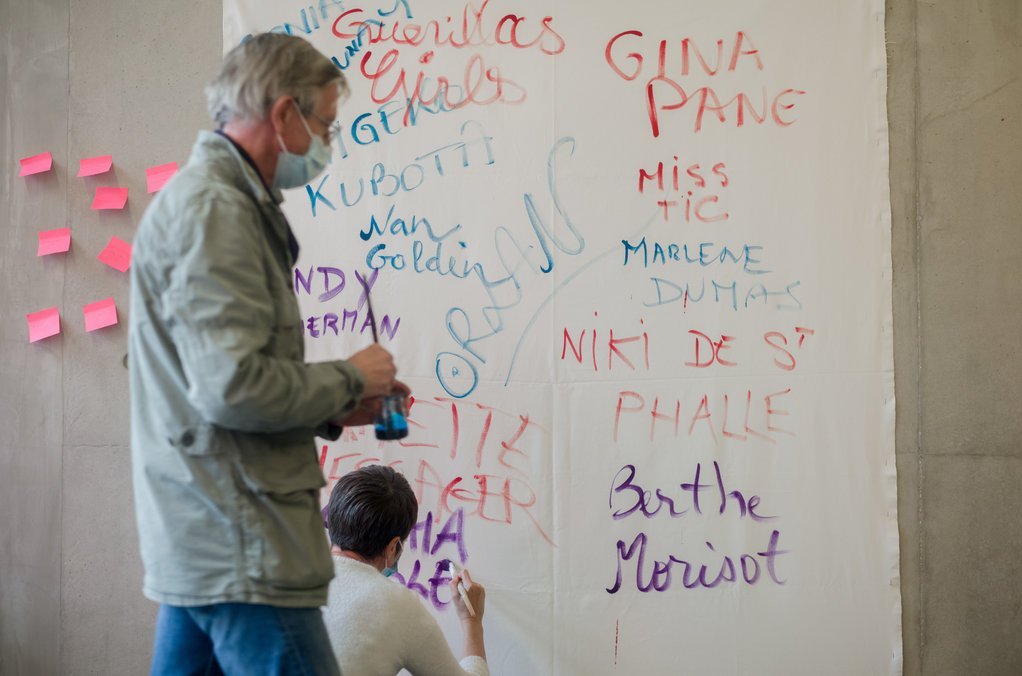 ONIA
Guerillas
Girls
SHIGEKO
KUBOTA
Nan
Goldin
NDY
ERMAN
ORLAN
ETTE
ESSAGER
HA
LE
GINA
PANE
Miss
TIC
MARLENE
DUMAS
NIKI DE ST
PHALLE
Berthe
Morisot